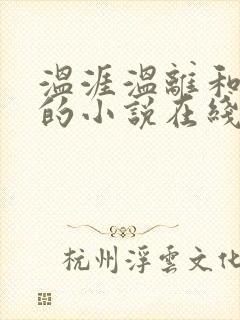 温涯温離和
的小说在綫
杭州浮雲文化